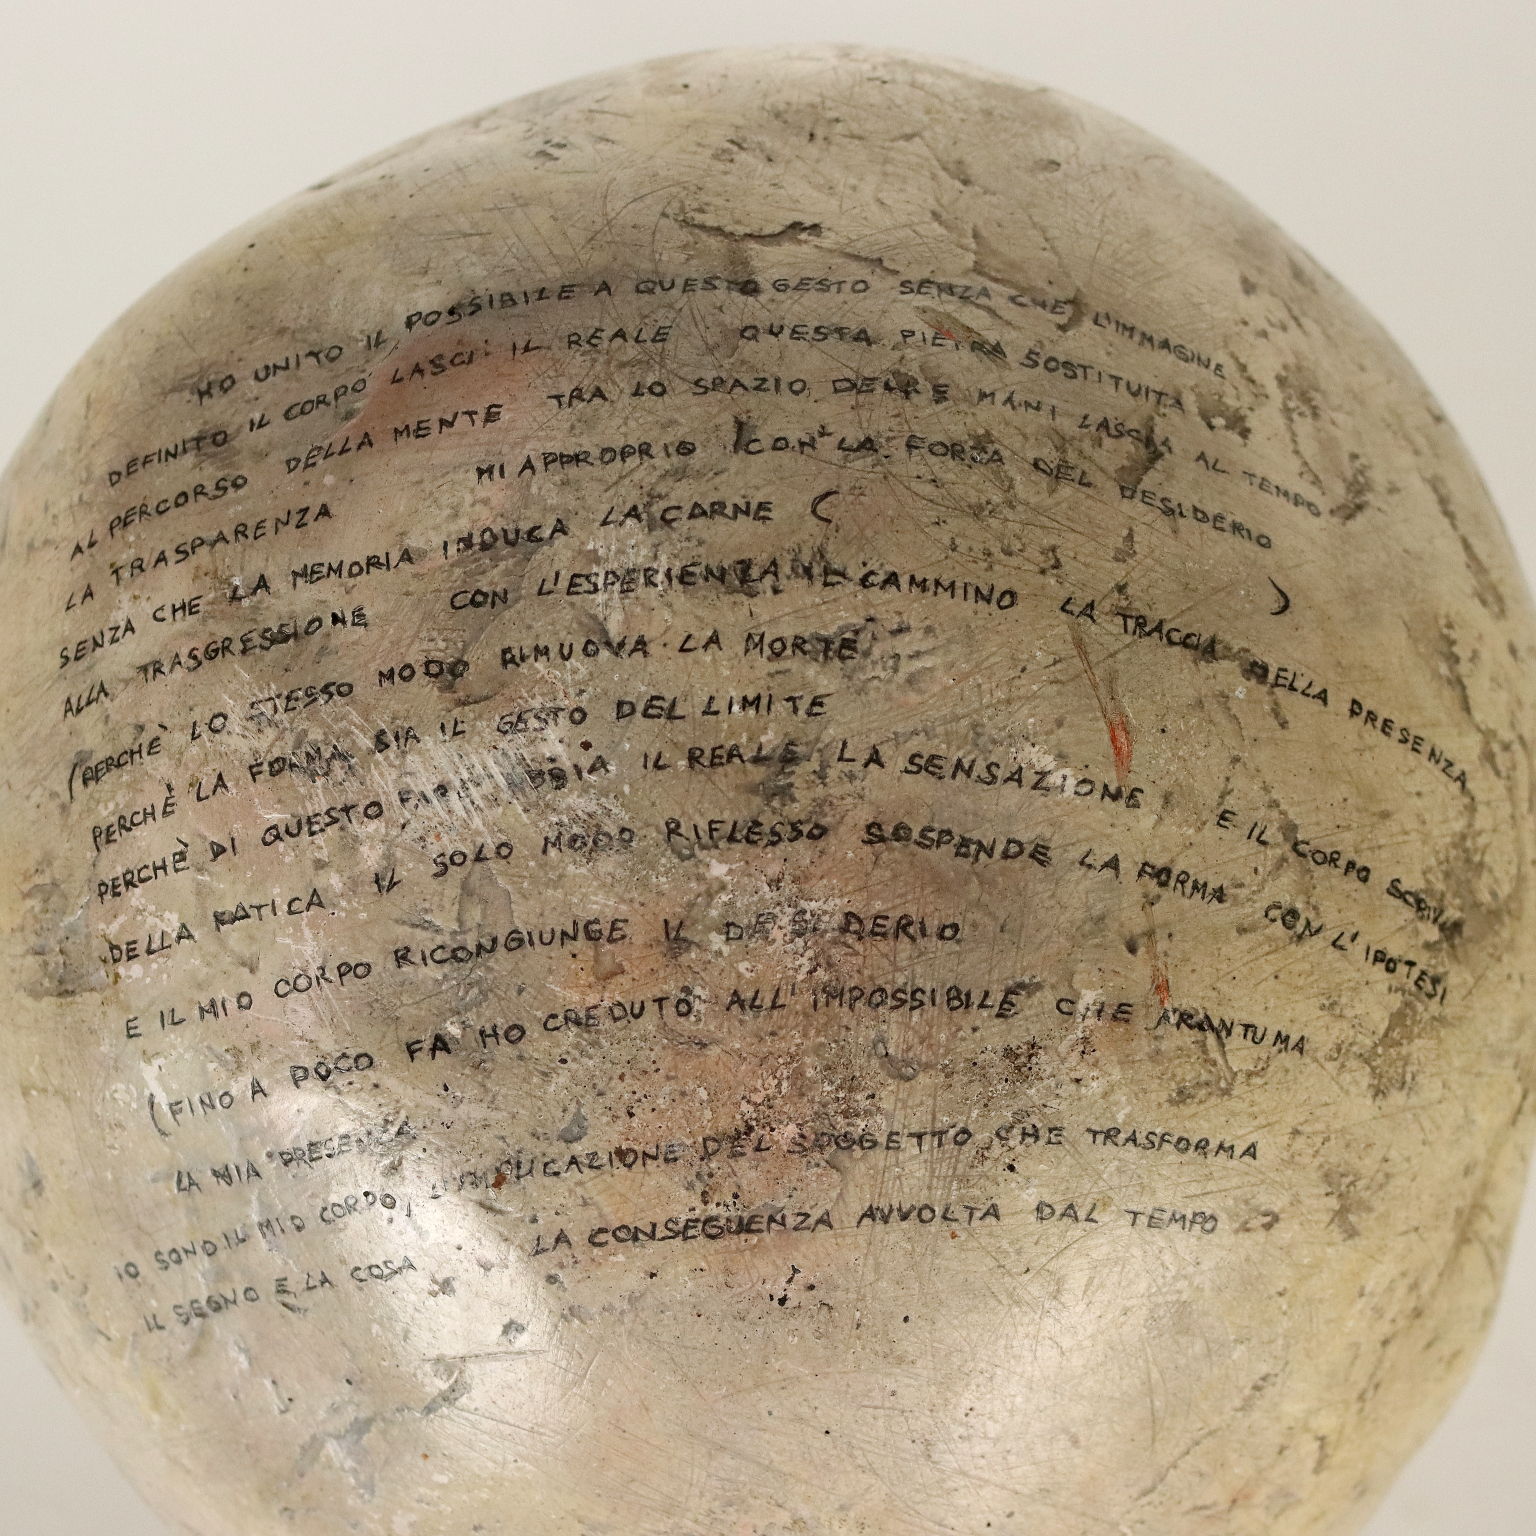 HO UNITO IL POSSIBILE A QUESTO GESTO SENZA CHE L'IMMAGINE
DEFINITO IL CORPO LASCI IL REALE QUESTA PIETRA SOSTITUITA
AL PERCORSO DELLA MENTE TRA LO SPAZIO DELLE MANI LASCIA AL TEMPO
LA TRASPARENZA MI APPROPRIO CON LA FORZA DEL DESIDERIO
SENZA CHE LA MEMORIA INDUCA LA CARNE ( )
ALLA TRASGRESSIONE CON L'ESPERIENZA IL CAMMINO LA TRACCIA DELLA PRESENZA
(PERCHÈ LO STESSO MODO RIMUOVA LA MORTE
PERCHÈ LA FORMA SIA IL GESTO DEL LIMITE
PERCHÈ DI QUESTO IL REALE LA SENSAZIONE E IL CORPO
DELLA FATICA IL SOLO MODO RIFLESSO SOSPENDE LA FORMA CON L'IPOTESI
E IL MIO CORPO RICONGIUNGE IL DESIDERIO
(FINO A POCO FA HO CREDUTO ALL'IMPOSSIBILE CHE FRANTUMA
LA MIA PRESENZA
IO SONO IL MIO CORPO, DEL SOGGETTO CHE TRASFORMA
IL SEGNO E LA COSA LA CONSEGUENZA AVVOLTA DAL TEMPO